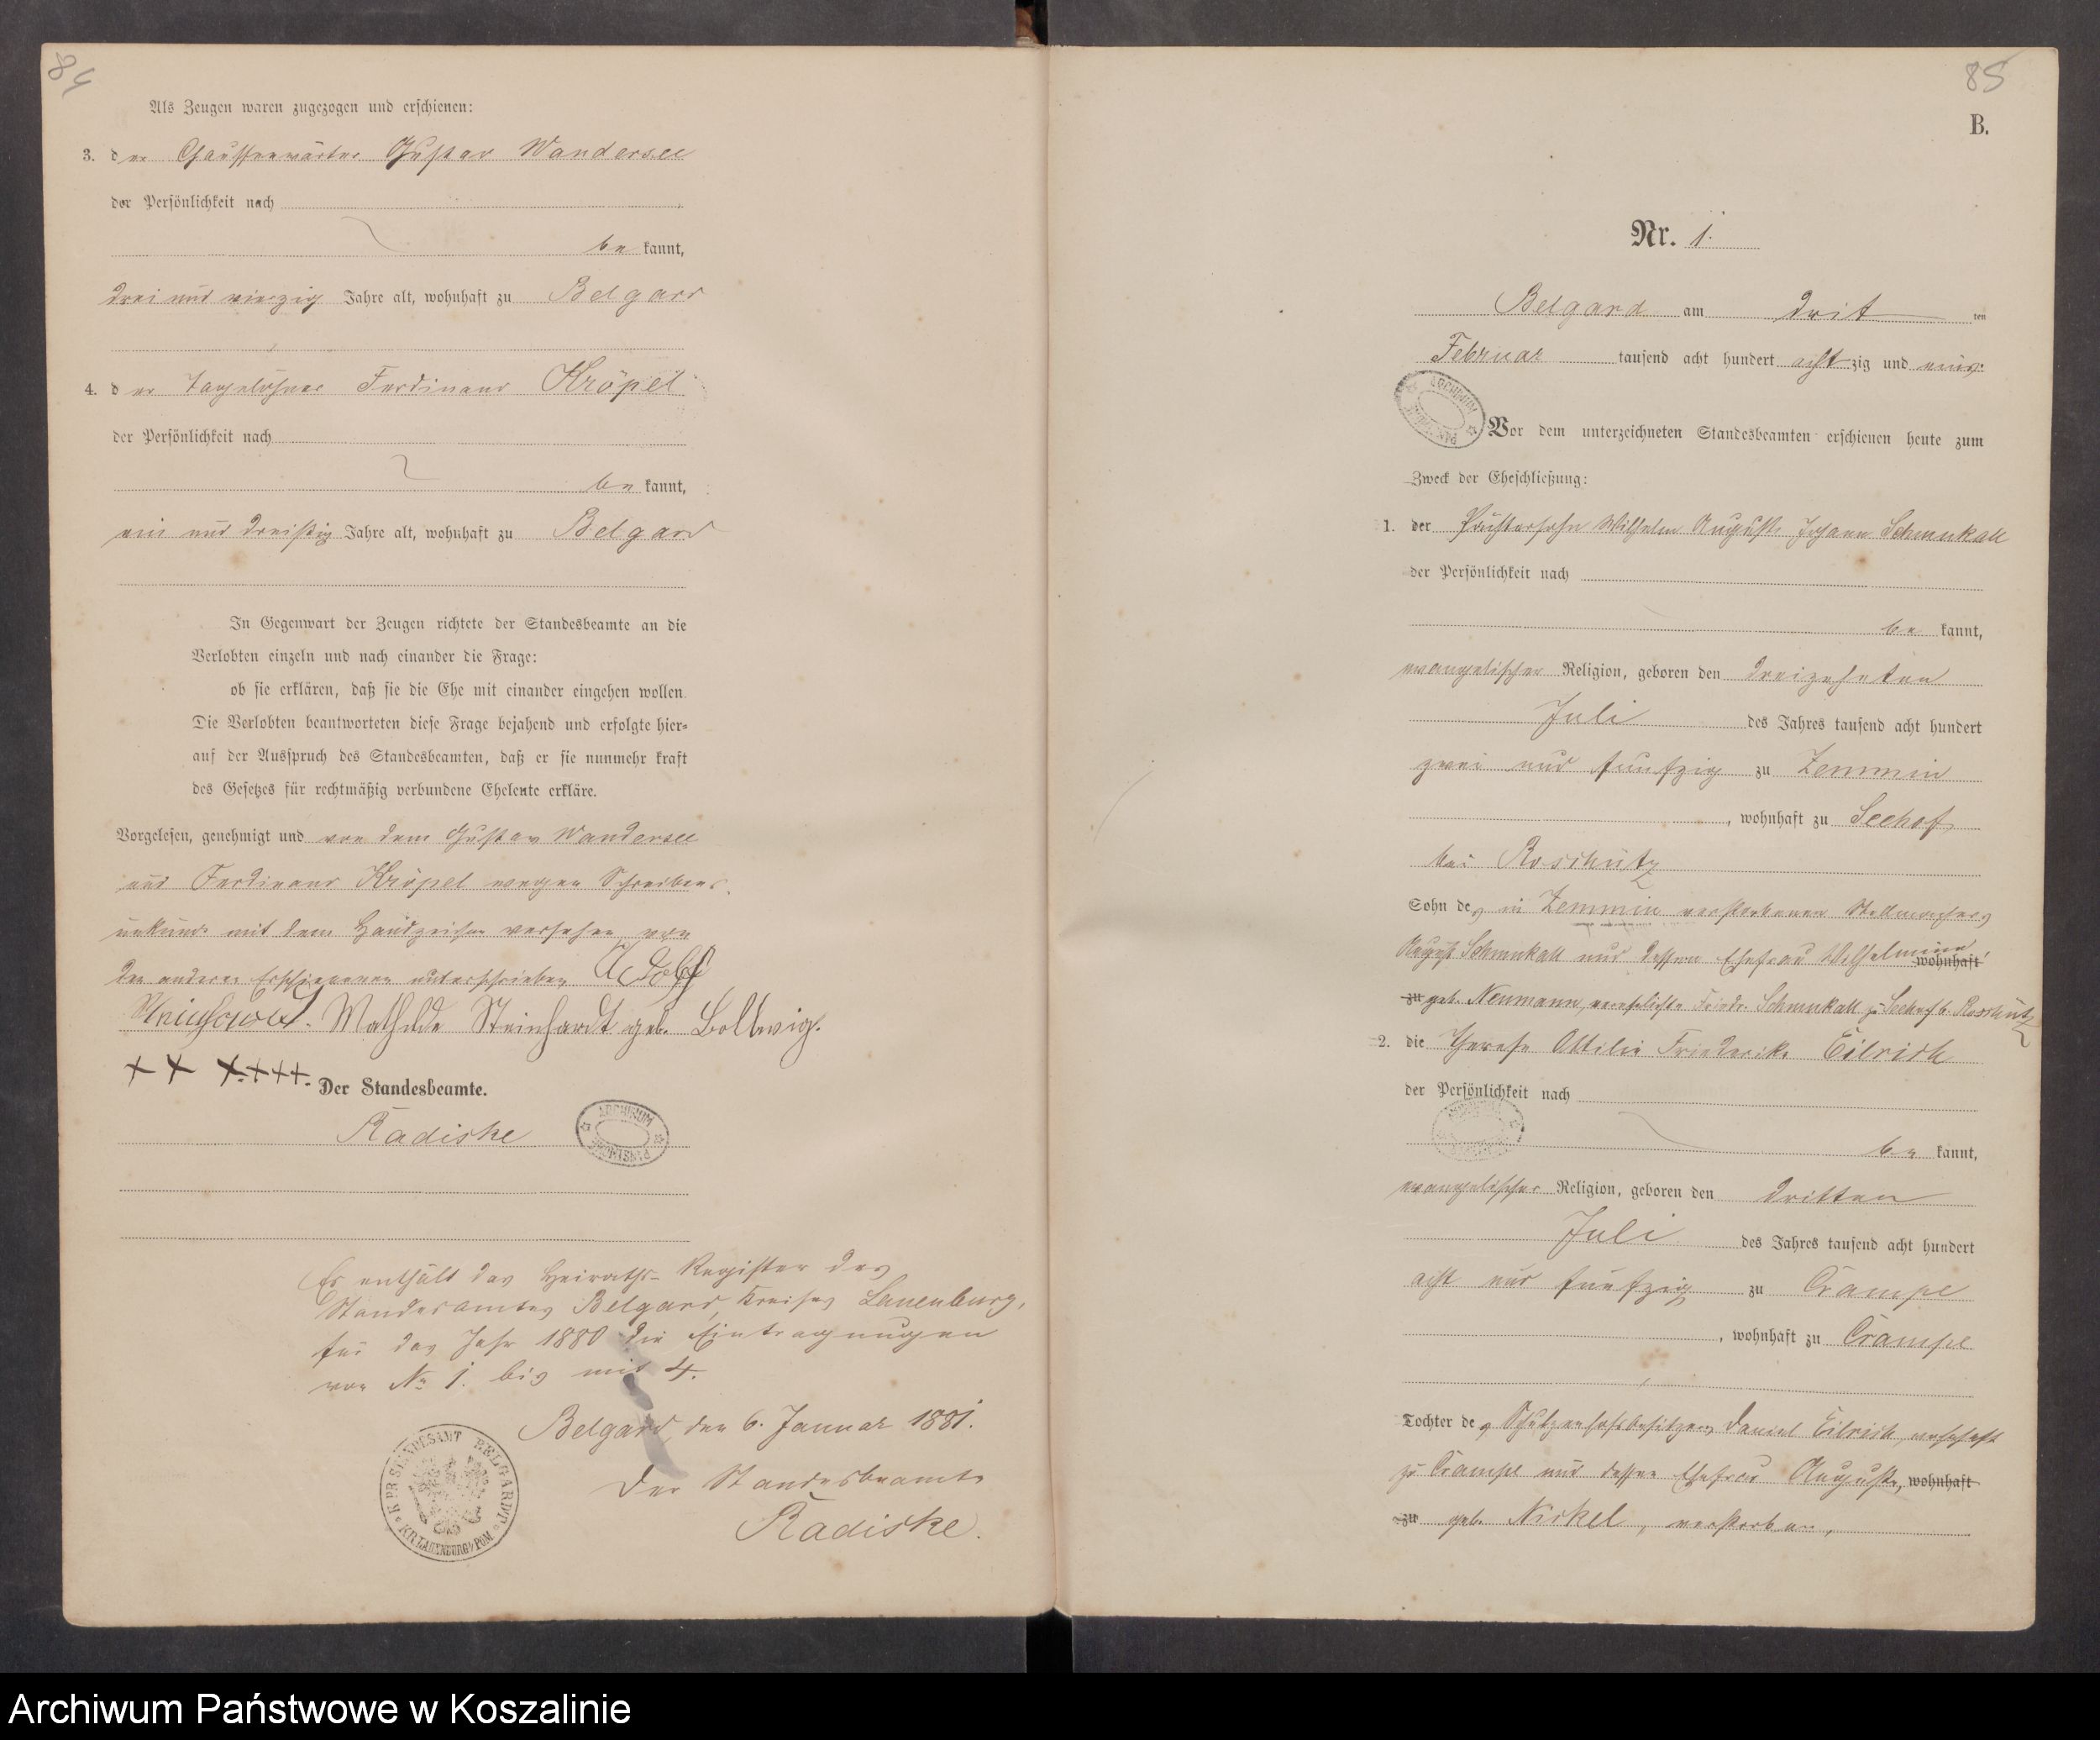 84
Als Zeugen waren zugezogen und erschienen:
3. der Chausseewärter Gustav Wandersee
der Persönlichkeit nach
be kannt,
drei und vierzig Jahre alt, wohnhaft zu Belgard
4. der Tagelöhner Ferdinand Kröpel
der Persönlichkeit nach
be kannt,
ein und dreißig Jahre alt, wohnhaft zu Belgard
In Gegenwart der Zeugen richtete der Standesbeamte an die
Verlobten einzeln und nach einander die Frage:
ob sie erklären, daß sie die Ehe mit einander eingehen wollen.
Die Verlobten beantworteten diese Frage bejahend und erfolgte hier-
auf der Ausspruch des Standesbeamten, daß er sie nunmehr kraft
des Gesetzes für rechtmäßig verbundene Eheleute erkläre.
Vorgelesen, genehmigt und von dem Gustav Wandersee
und Ferdinand Kröpel wegen Schreibens
unkunde mit dem Handzeichen versehen, von
den anderen Erschienenen unterschrieben Adolf
Steinhardt. Mathilde Steinhardt geb. Bollwig.
+ + ++++.
Der Standesbeamte.
Radiske
ARCHIWUM PAŃSTWOWE
Es enthält das Heiraths-Register des
Standesamtes Belgard, Kreises Lauenburg,
für das Jahr 1880 die Eintragungen
von No 1. bis mit 4.
Belgard, den 6. Januar 1881.
Der Standesbeamte
Radiske.
K. PR. STANDESAMT BELGARD KR. LAUENBURG i/ POM
85
B.
Nr. 1.
Belgard am drit ten
Februar tausend acht hundert acht zig und eins
ARCHIWUM PAŃSTWOWE
Vor dem unterzeichneten Standesbeamten erschienen heute zum
Zweck der Eheschließung:
1. der Pächtersohn Wilhelm August Johann Schmukall
der Persönlichkeit nach
be kannt,
evangelischer Religion, geboren den dreizehnten
Juli des Jahres tausend acht hundert
zwei und fünfzig zu Zemmin
, wohnhaft zu Seehof
bei Roschütz
Sohn des in Zemmin verstorbenen Stellmachers
August Schmukall und dessen Ehefrau Wilhelmine, wohnhaft
zu geb. Neumann, verehelichte Friedr. Schmukall zu Seehof b. Roschütz
2. die Therese Ottilie Friederike Eilrich
der Persönlichkeit nach
be kannt,
evangelischer Religion, geboren den dritten
Juli des Jahres tausend acht hundert
acht und fünfzig zu Crampe
, wohnhaft zu Crampe
Tochter des Schulzenhofsbesitzers Daniel Eilrich, wohnhaft
zu Crampe und dessen Ehefrau Auguste, wohnhaft
zu geb. Nickel, verstorben,
Archiwum Państwowe w Koszalinie